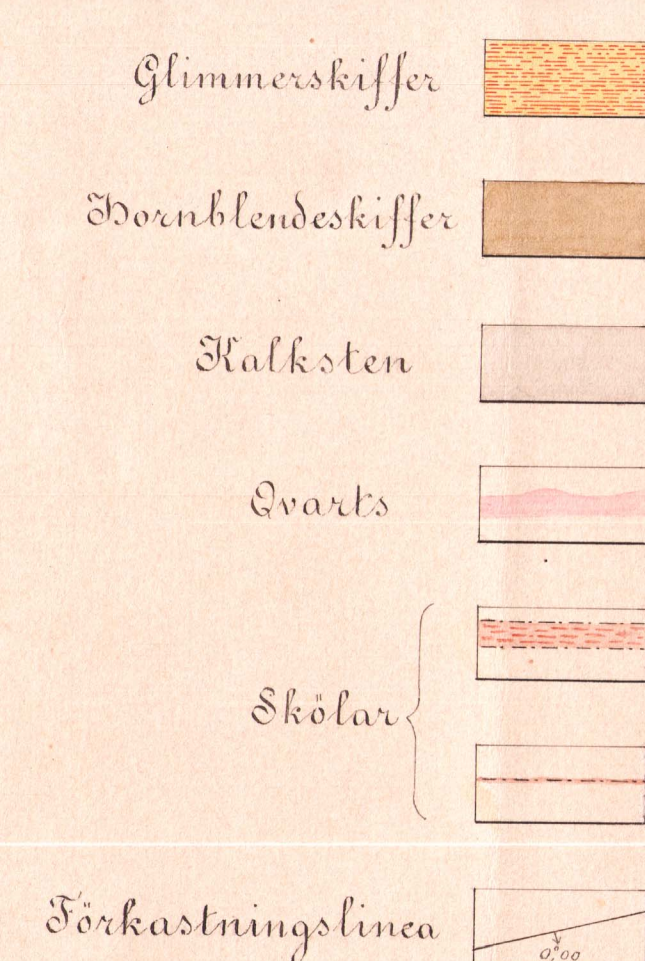 Glimmerskiffer
Hornblendeskiffer
Kalksten
Qvarts
Skölar
Förkastningslinea
0,00